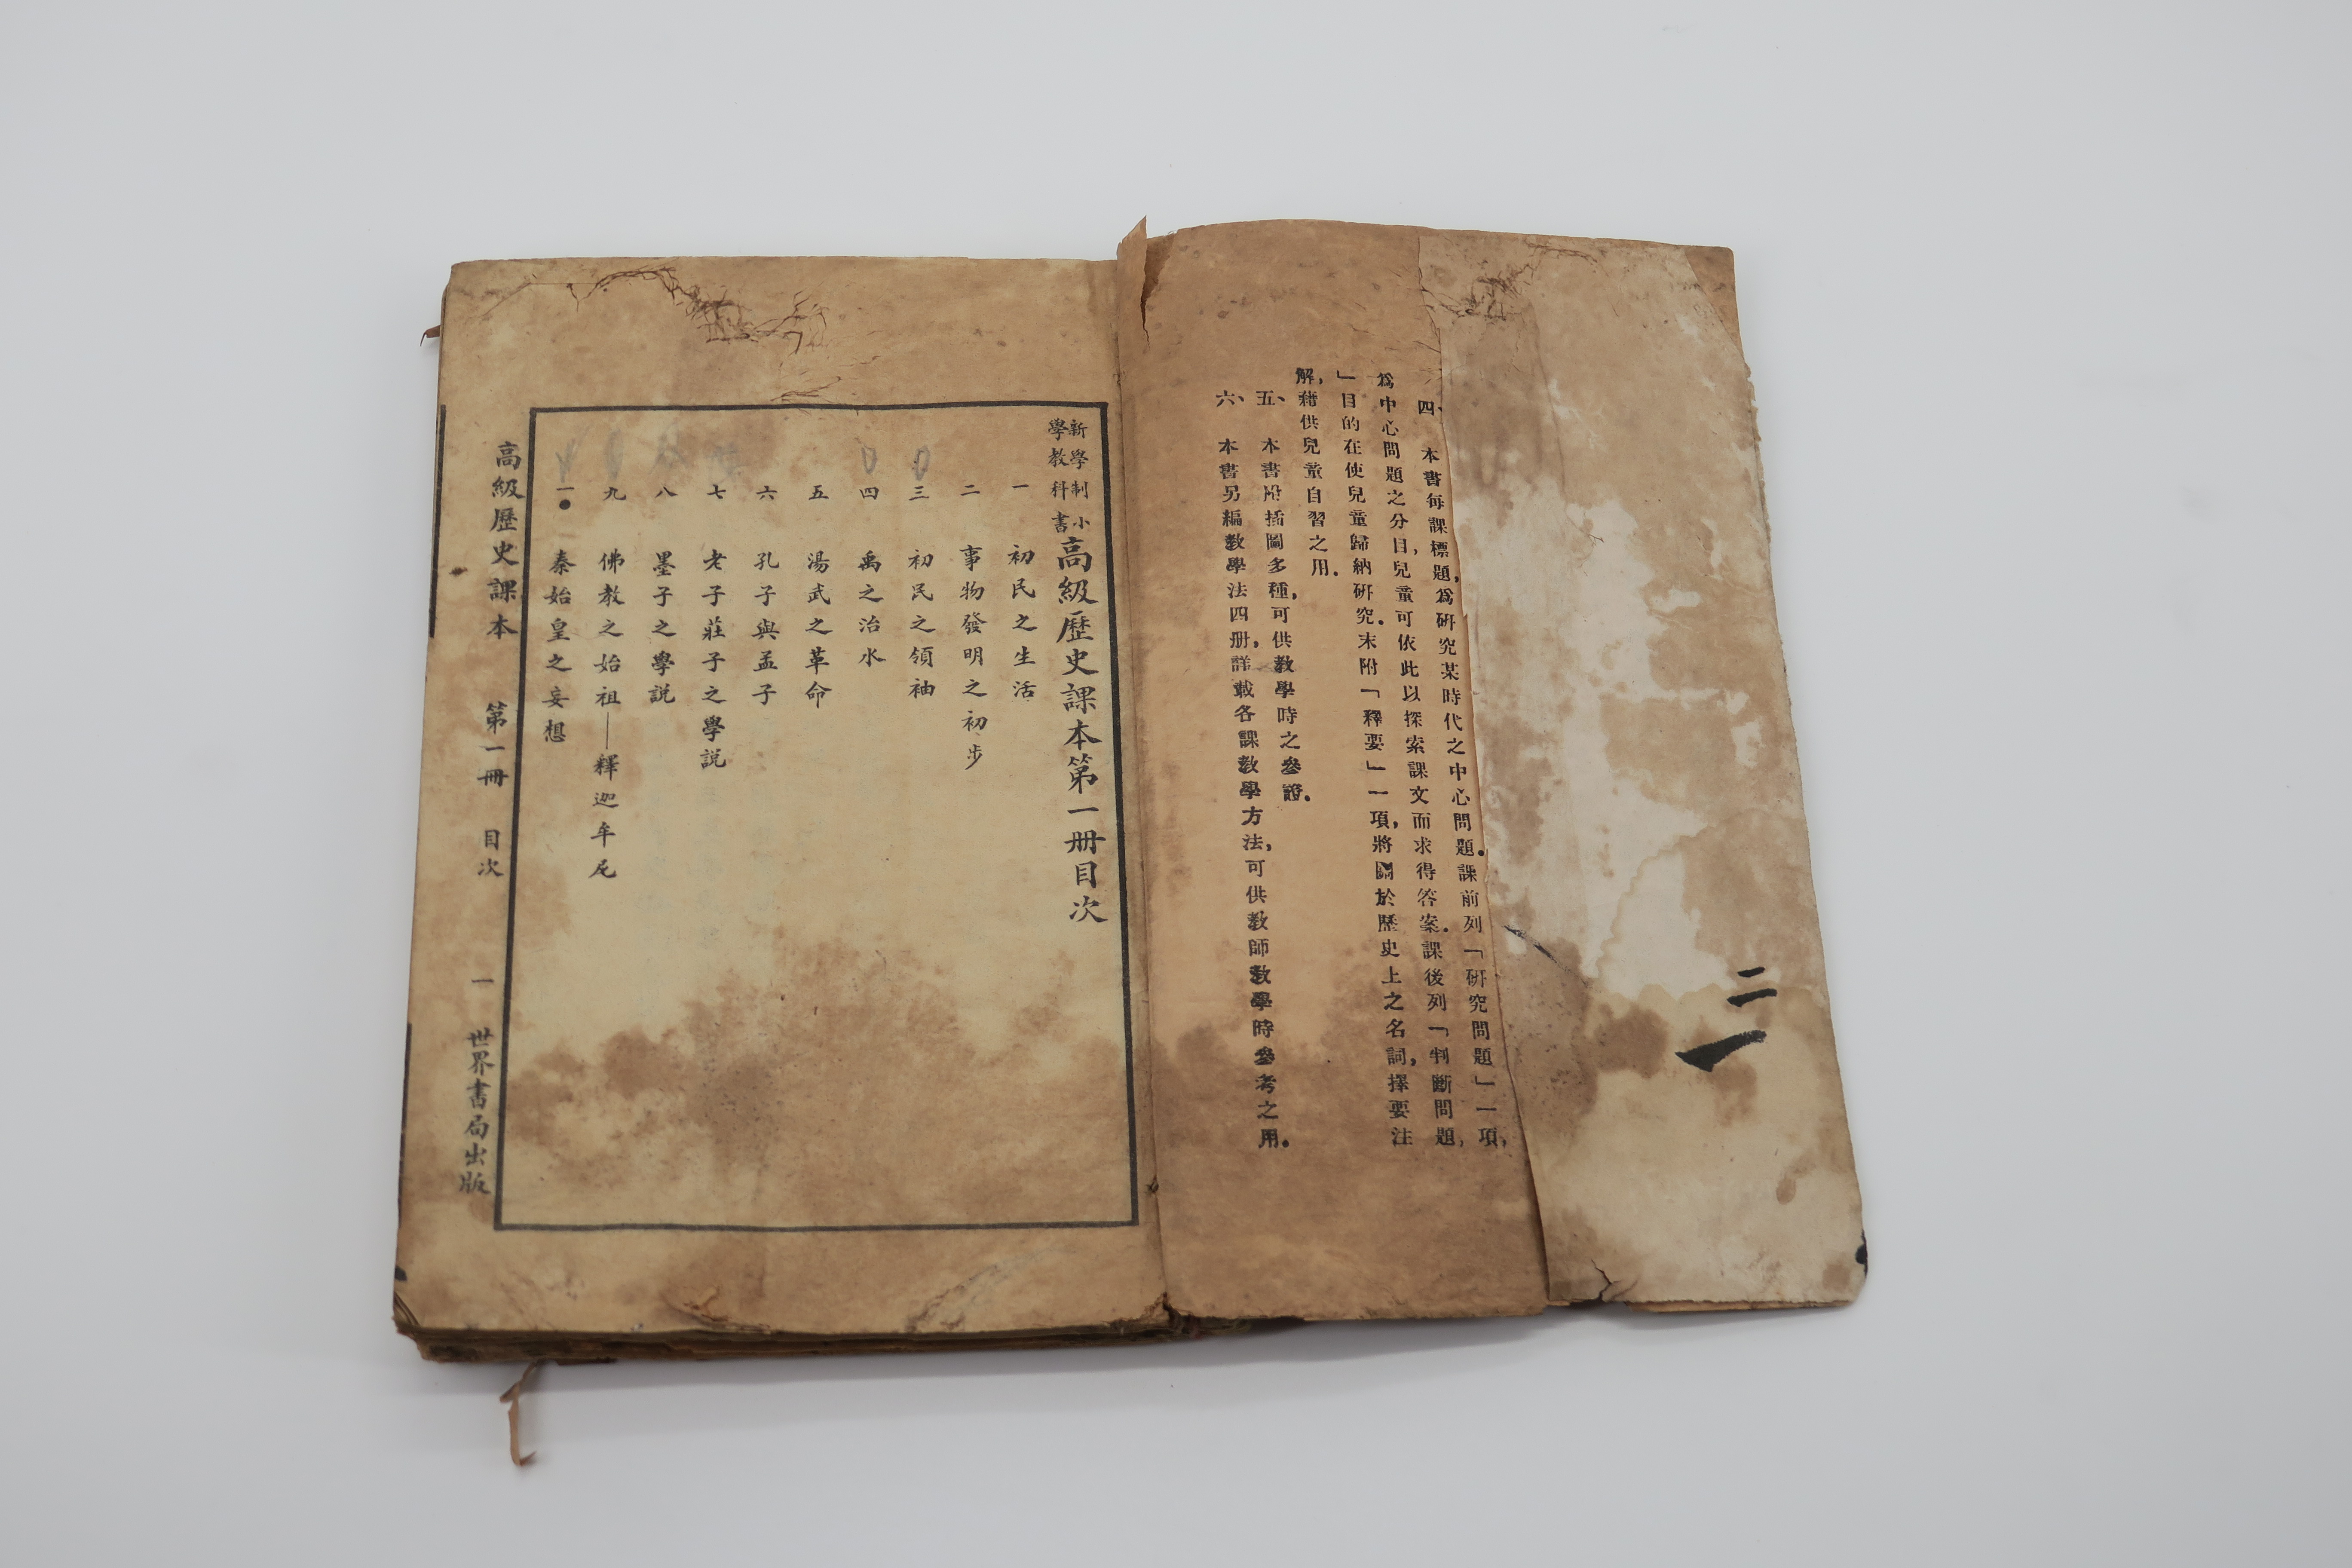 二一
四、本書每課標題，爲研究某時代之中心問題。課前列「研究問題」一項，
爲中心問題之分目，兒童可依此以探索課文而求得答案。課後列「判斷問題，
」目的在使兒童歸納研究。末附「釋要」一項，將關於歷史上之名詞，擇要注
解，藉供兒童自習之用。
五、本書附插圖多種，可供教學時之參證。
六、本書另編教學法四册，詳載各課教學方法，可供教師教學時參考之用。
新學制小
學教科書
高級歷史課本第一册目次
一 初民之生活
二 事物發明之初步
三 初民之領袖
四 禹之治水
五 湯武之革命
六 孔子與孟子
七 老子莊子之學説
八 墨子之學説
九 佛教之始祖——釋迦牟尼
一● 秦始皇之妄想
高級歷史課本 第一冊 目次 一 世界書局出版